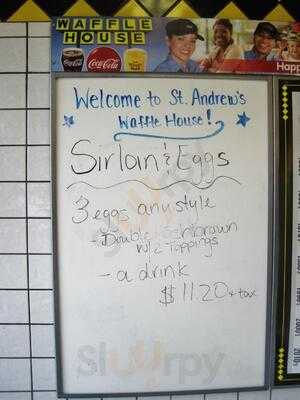 WAFFLE
HOUSE
Coca-Cola
Coca-Cola
Happ
Welcome to St. Andrew's
Waffle House!
Sirloin & Eggs
3 eggs any style
- Double Hashbrown
w/2 Toppings
- a drink
$11.20 + tax
Sluurrpy